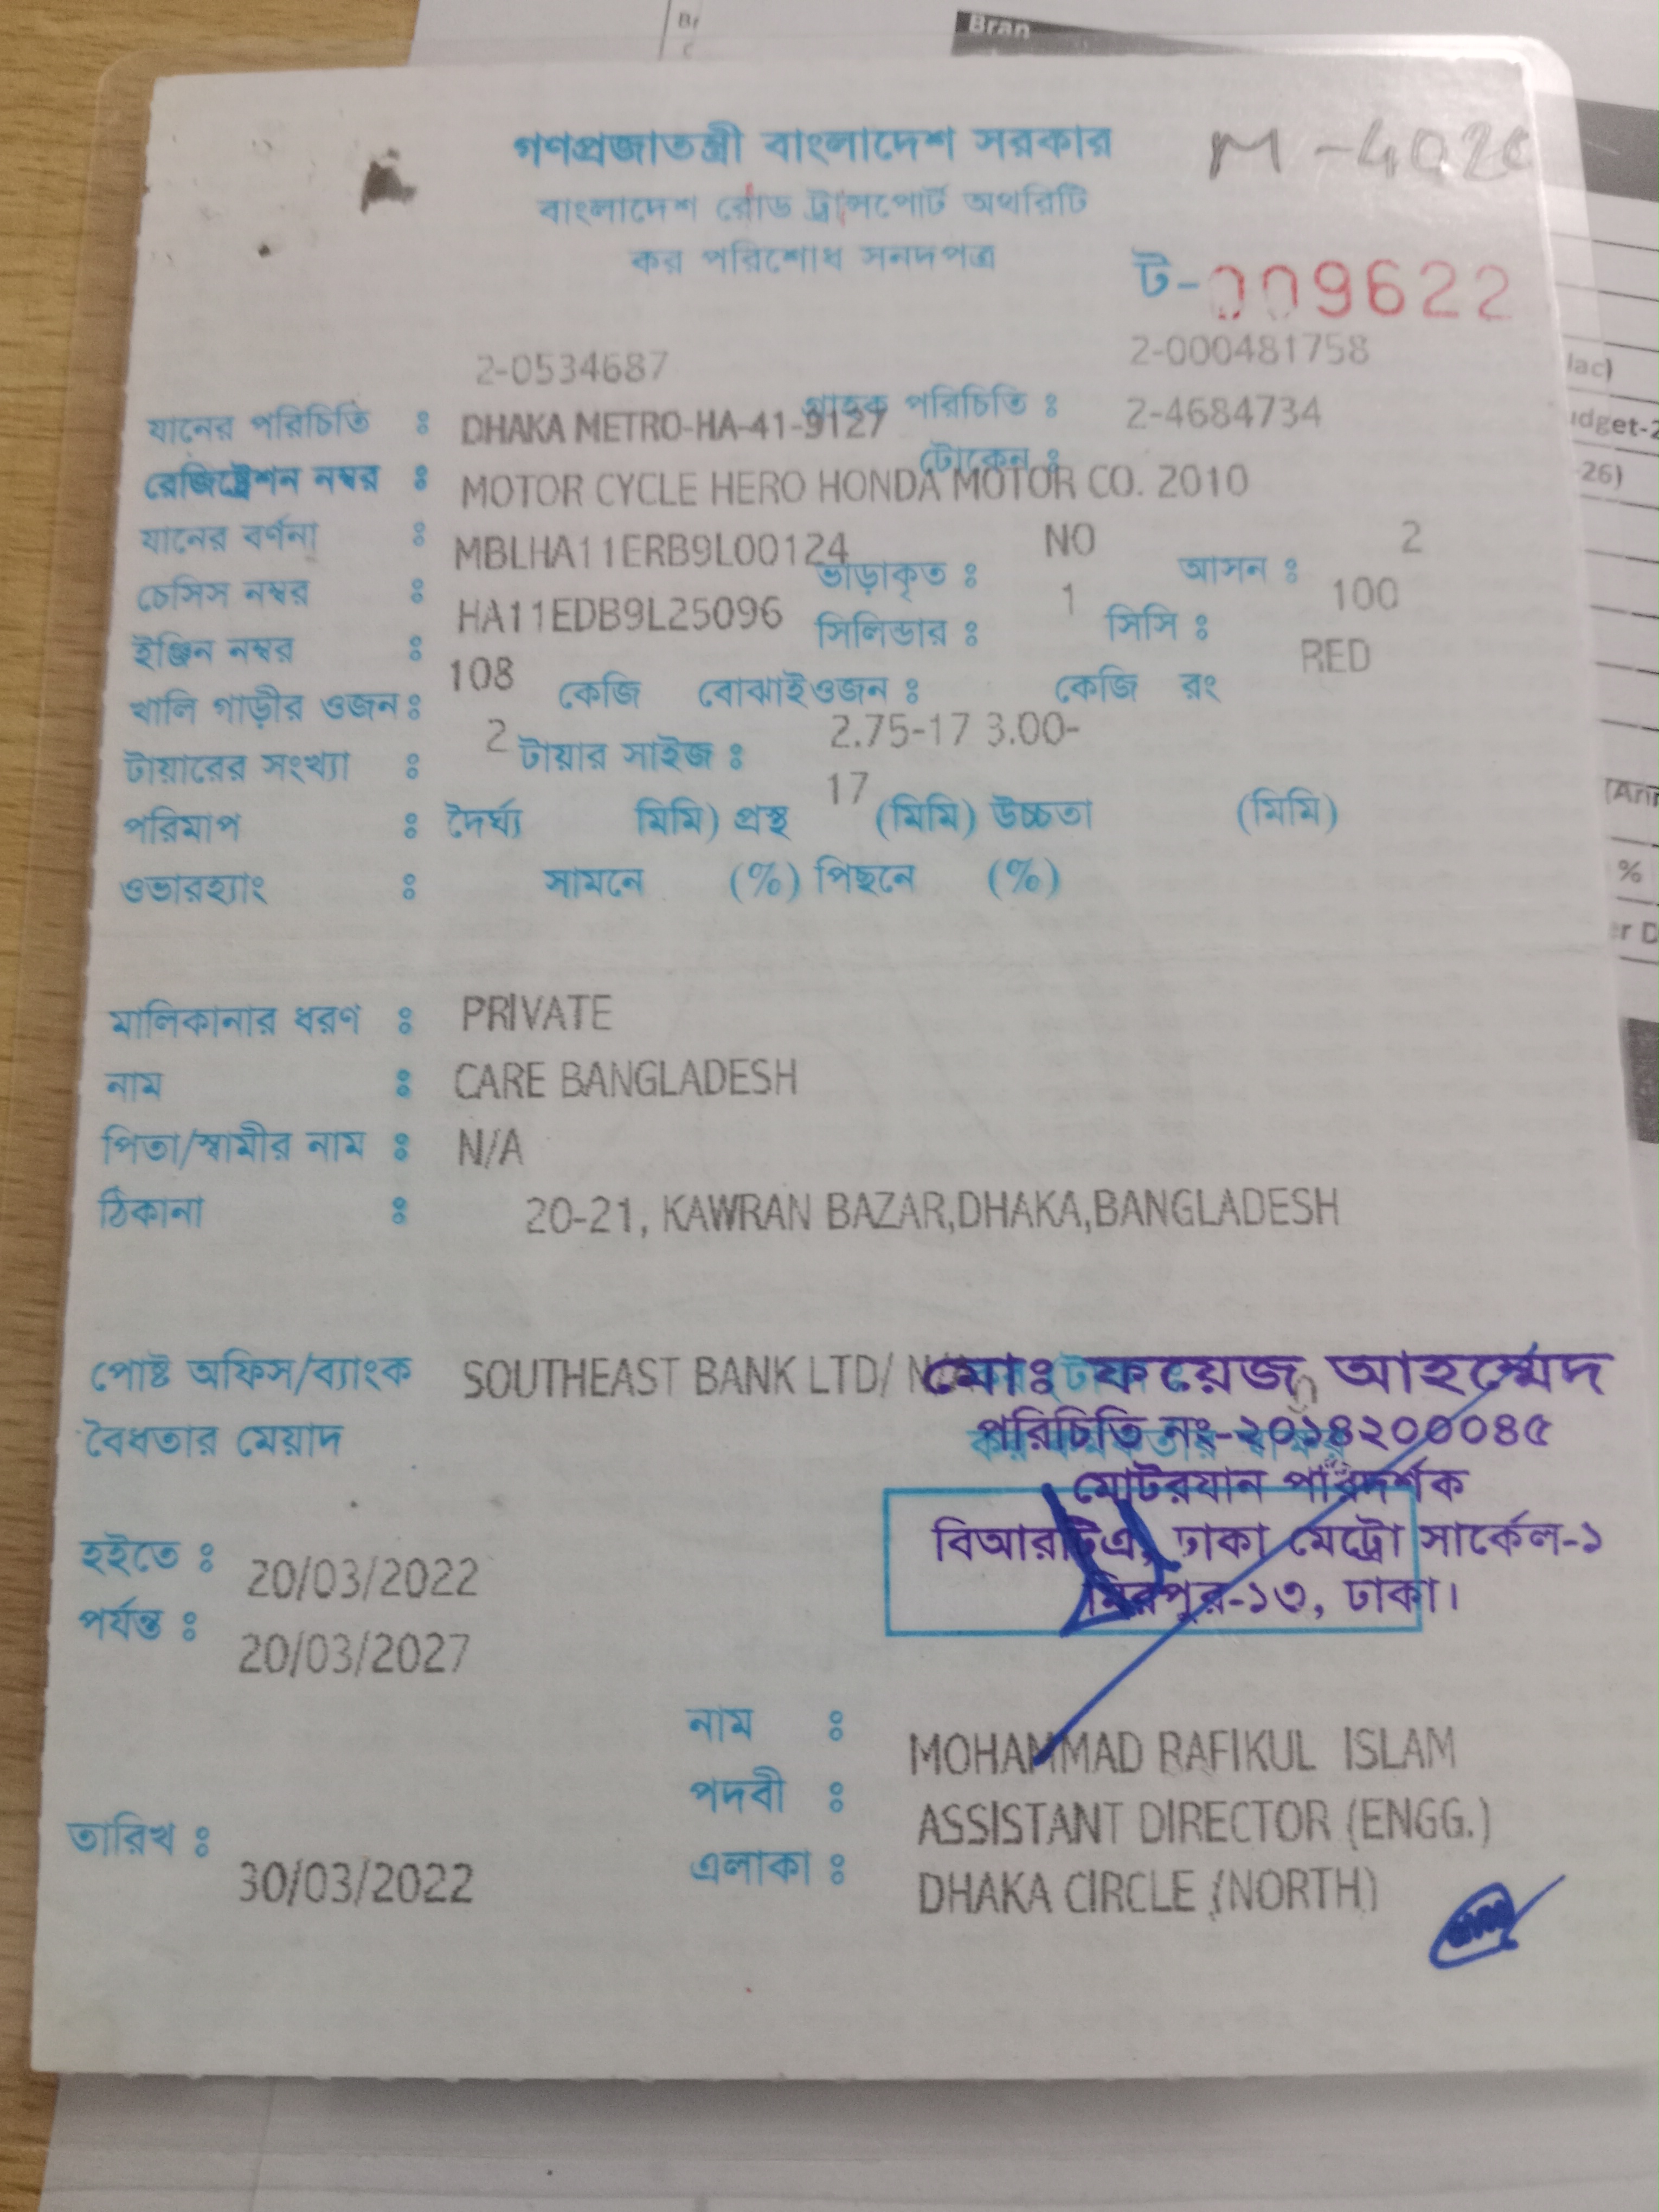 Bran
গণপ্রজাতন্ত্রী বাংলাদেশ সরকার
বাংলাদেশ রোড ট্রান্সপোর্ট অথরিটি
কর পরিশোধ সনদপত্র
ট-009622
2-0534687 2-000481758
যানের পরিচিতি : DHAKA METRO-HA-41-9127 গ্রাহক পরিচিতি : 2-4684734
রেজিষ্ট্রেশন নম্বর : MOTOR CYCLE HERO HONDA MOTOR CO. 2010 টোকেন :
যানের বর্ণনা : MBLHA11ERB9L00124 NO 2
চেসিস নম্বর : HA11EDB9L25096 ভাড়াকৃত : 1 আসন : 100
ইঞ্জিন নম্বর : 108 সিলিন্ডার : সিসি : RED
খালি গাড়ীর ওজন : 2 কেজি বোঝাইওজন : কেজি রং
টায়ারের সংখ্যা : টায়ার সাইজ : 2.75-17 3.00-
17
পরিমাপ : দৈর্ঘ্য মিমি) প্রস্থ (মিমি) উচ্চতা (মিমি)
ওভারহ্যাং : সামনে (%) পিছনে (%)
মালিকানার ধরণ : PRIVATE
নাম : CARE BANGLADESH
পিতা/স্বামীর নাম : N/A
ঠিকানা : 20-21, KAWRAN BAZAR,DHAKA,BANGLADESH
পোষ্ট অফিস/ব্যাংক SOUTHEAST BANK LTD/
মোঃ ফয়েজ আহম্মেদ
বৈধতার মেয়াদ
পরিচিতি নং-২০১৪২০০০৪৫
মোটরযান পরিদর্শক
বিআরটিএ, ঢাকা মেট্রো সার্কেল-১
মিরপুর-১৩, ঢাকা।
হইতে : 20/03/2022
পর্যন্ত : 20/03/2027
নাম : MOHAMMAD RAFIKUL ISLAM
পদবী : ASSISTANT DIRECTOR (ENGG.)
এলাকা : DHAKA CIRCLE (NORTH)
তারিখ : 30/03/2022